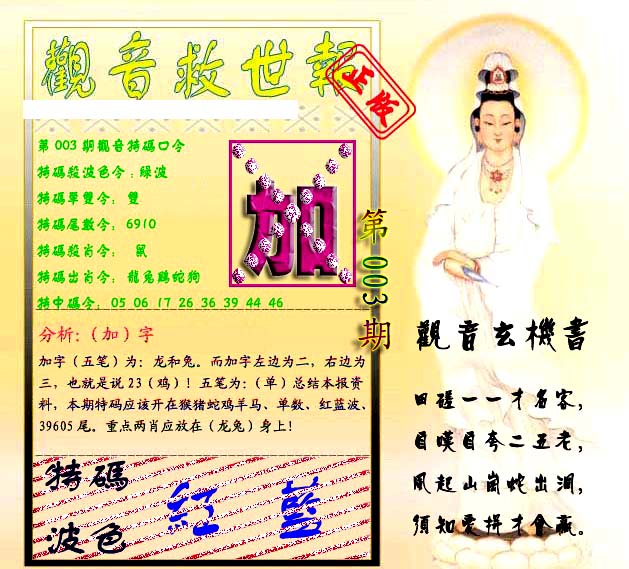 觀音救世報
正版
第003期觀音特碼口令
特碼殺波色令：綠波
特碼單雙令： 雙
特碼尾數令： 6910
特碼殺肖令： 鼠
特碼出肖令： 龍兔鷄蛇狗
特中碼令：05 06 17 26 36 39 44 46
加
第003期
分析：（加）字
加字（五笔）为：龙和兔。而加字左边为二，右边为
三，也就是说23（鸡）！五笔为：（单）总结本报资
料，本期特码应该开在猴猪蛇鸡羊马、单数、红蓝波、
39605尾。重点两肖应放在（龙兔）身上！
特碼
波色
紅 藍
觀音玄機書
田磋一一才名客，
目嘆目夸二五老，
風起山崗蛇出洞，
須知愛拼才會贏。